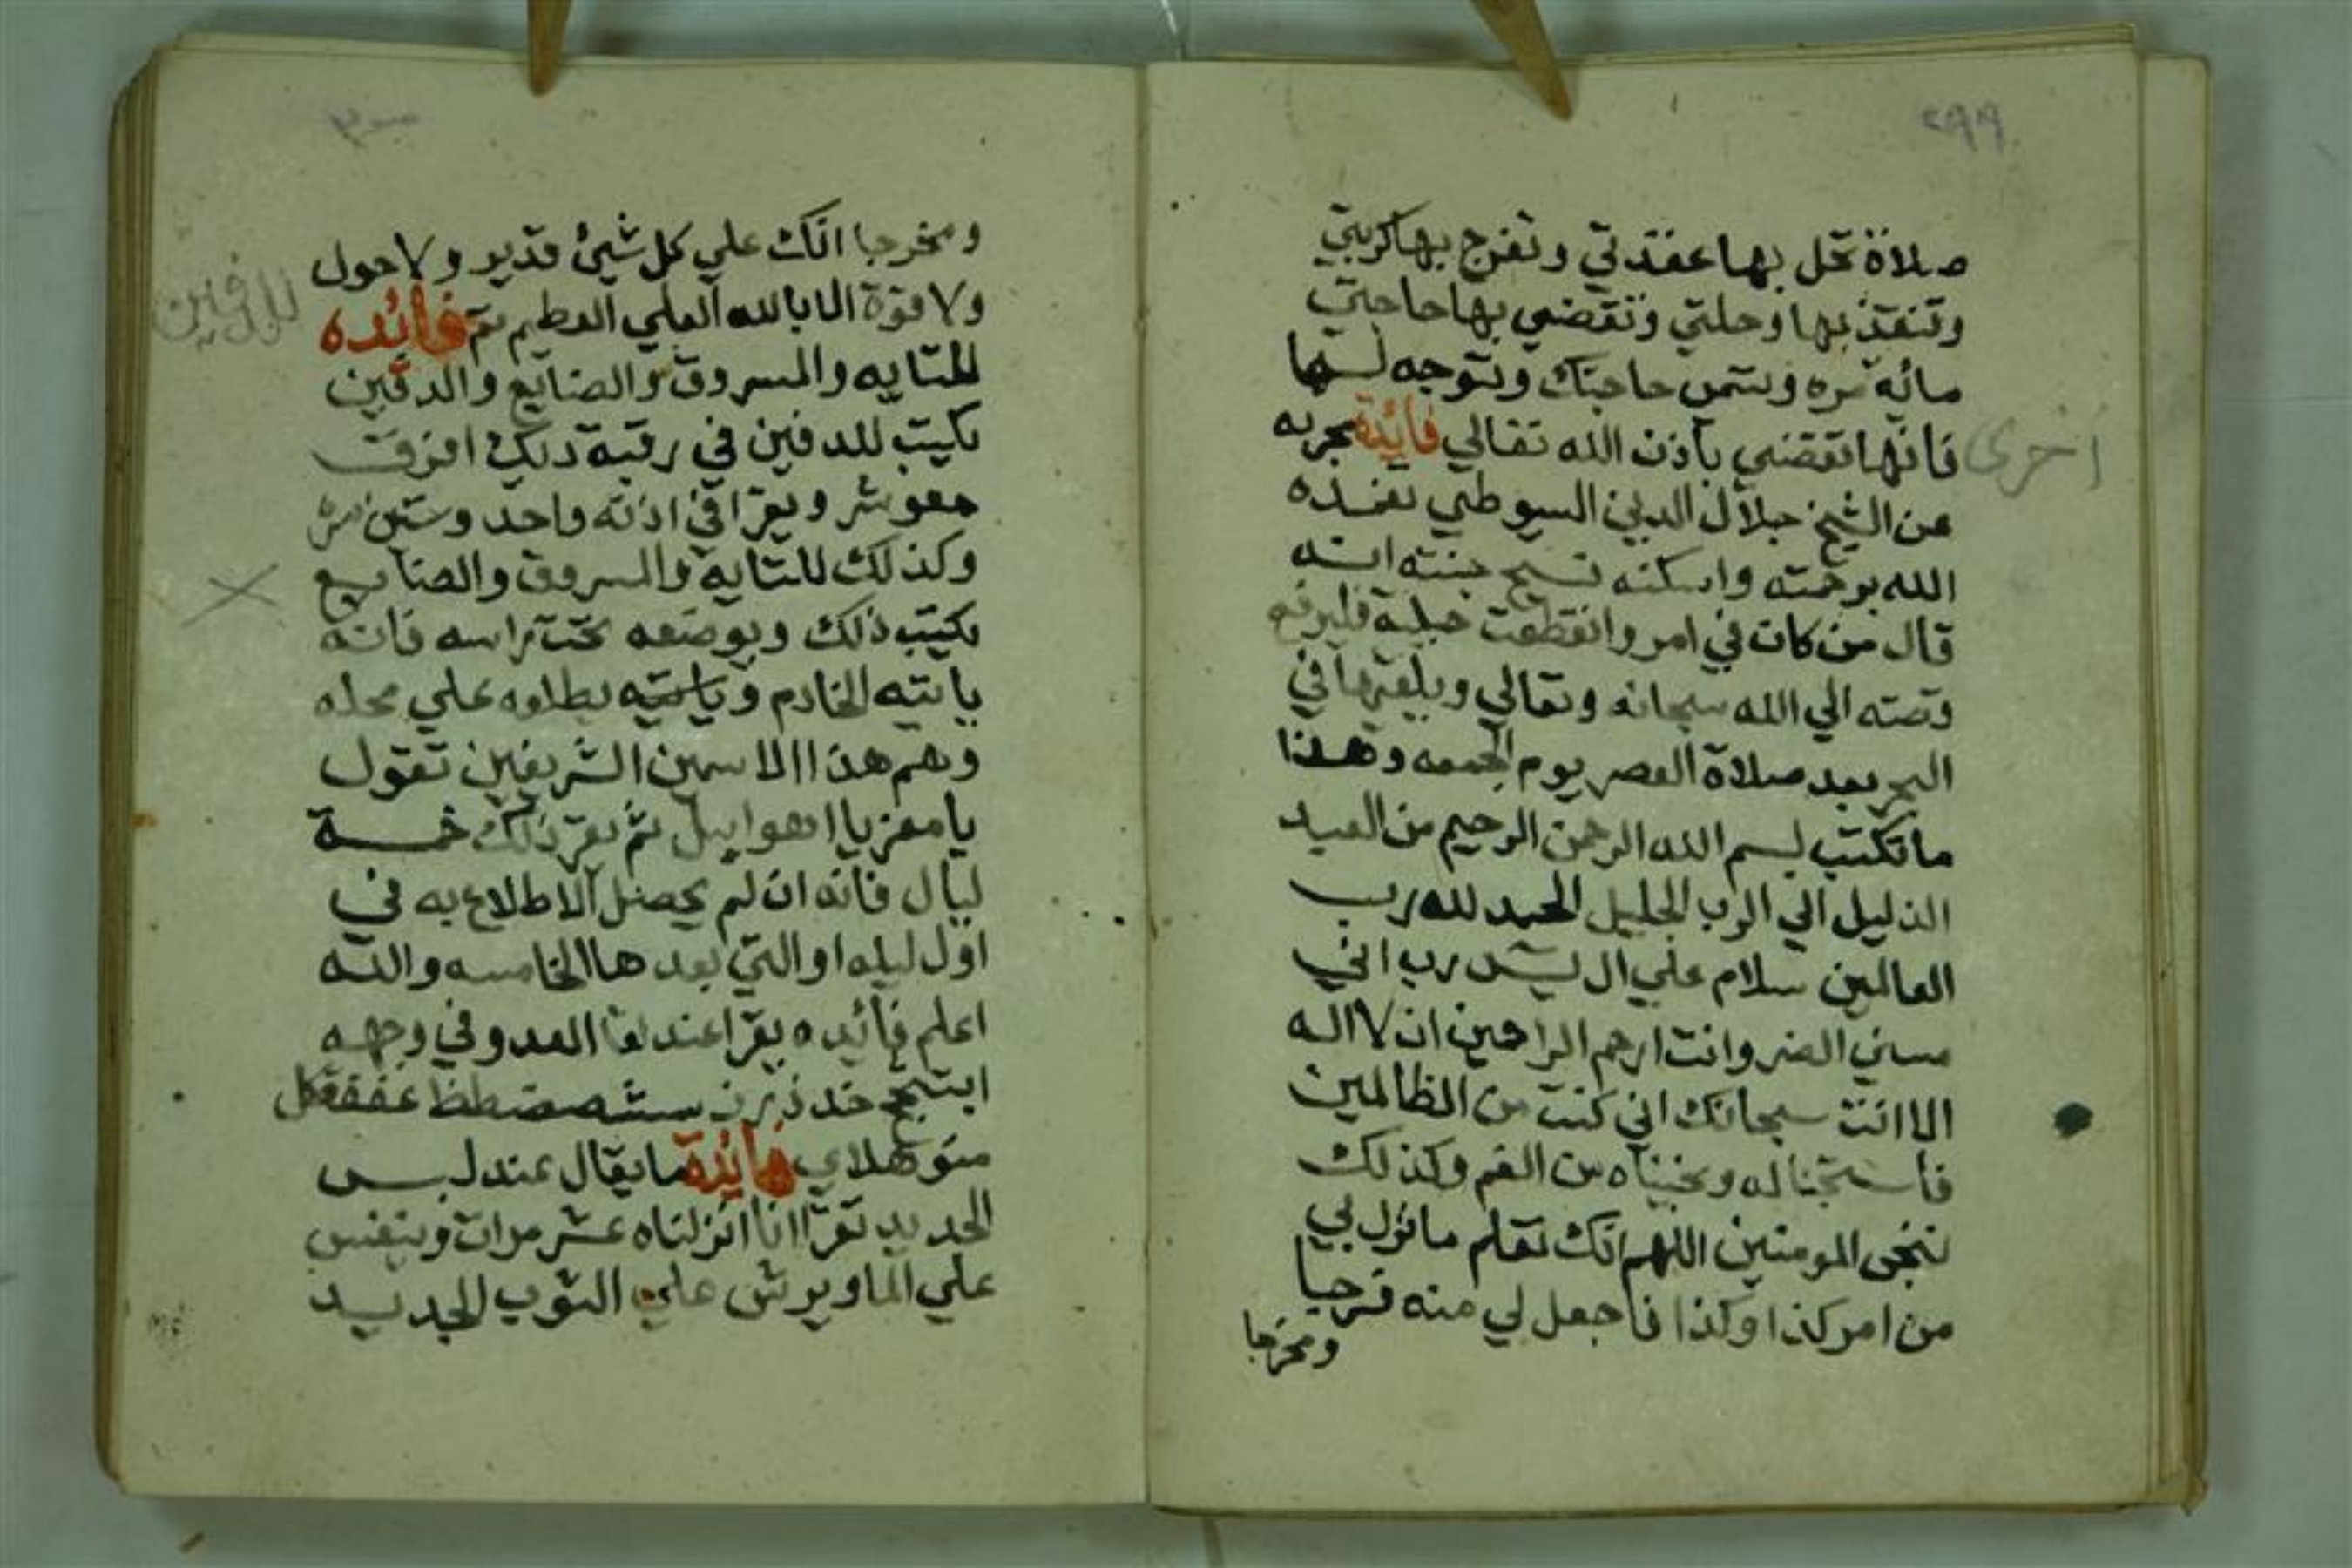 ٢٩٩
صلاة تحل بها عقدتي وتفرج بها كربتي
وتنقذ بها وحلتي وتقضي بها حاجتي
مائة مره وتسمى حاجتك وتتوجه لها
فانها تقضي باذن الله تعالي فائدة مجربه
اخرى
عن الشيخ جلال الدين السيوطي تغمده
الله برحمته واسكنه فسيح جنته انه
قال من كان في امر وانقطعت حيلته فليرفع
قصته الي الله سبحانه وتعالي ويلقيها في
البحر بعد صلاة العصر يوم الجمعه وهذا
ما تكتب بسم الله الرحمن الرحيم من العبد
الذليل الي الرب الجليل الحمد لله رب
العالمين سلام علي ال يس رب اني
مسني الضر وانت ارحم الراحمين ان لا اله
الا انت سبحانك اني كنت من الظالمين
فاستجبنا له ونجيناه من الغم وكذلك
ننجى المومنين اللهم انك تعلم ما نزل بي
من امر كذا وكذا فاجعل لي منه فرجا
ومخرجا
ومخرجا انك علي كل شيئ قدير ولا حول
ولا قوة الا بالله العلي العظيم تم فائده
للدفين
للتايه والمسروق والضايع والدفين
يكتب للدفين في رقبة ديك افرق
ويقرا في اذنه واحد وستين مرة
وكذلك للتايه والمسروق والضايع
يكتب ذلك ويوضعه تحت راسه فانه
ياتيه الخادم علي محله
وهم هذا الاسمين الشريفين تقول
يا معز يا ثم يقر ذلك خمسة
ليال فانه ان لم يحصل الاطلاع به في
اول ليله او التي بعدها الخامسه والله
اعلم فائده يقرا عند لقا العدو في وجهه
ابتثجح خدذرز سشصضطظ عغفقكل
منوهلاي فائدة ما يقال عند لبس
الجديد تقرا انا انزلناه عشر مرات وينفس
علي الما ويرش علي الثوب الجديد